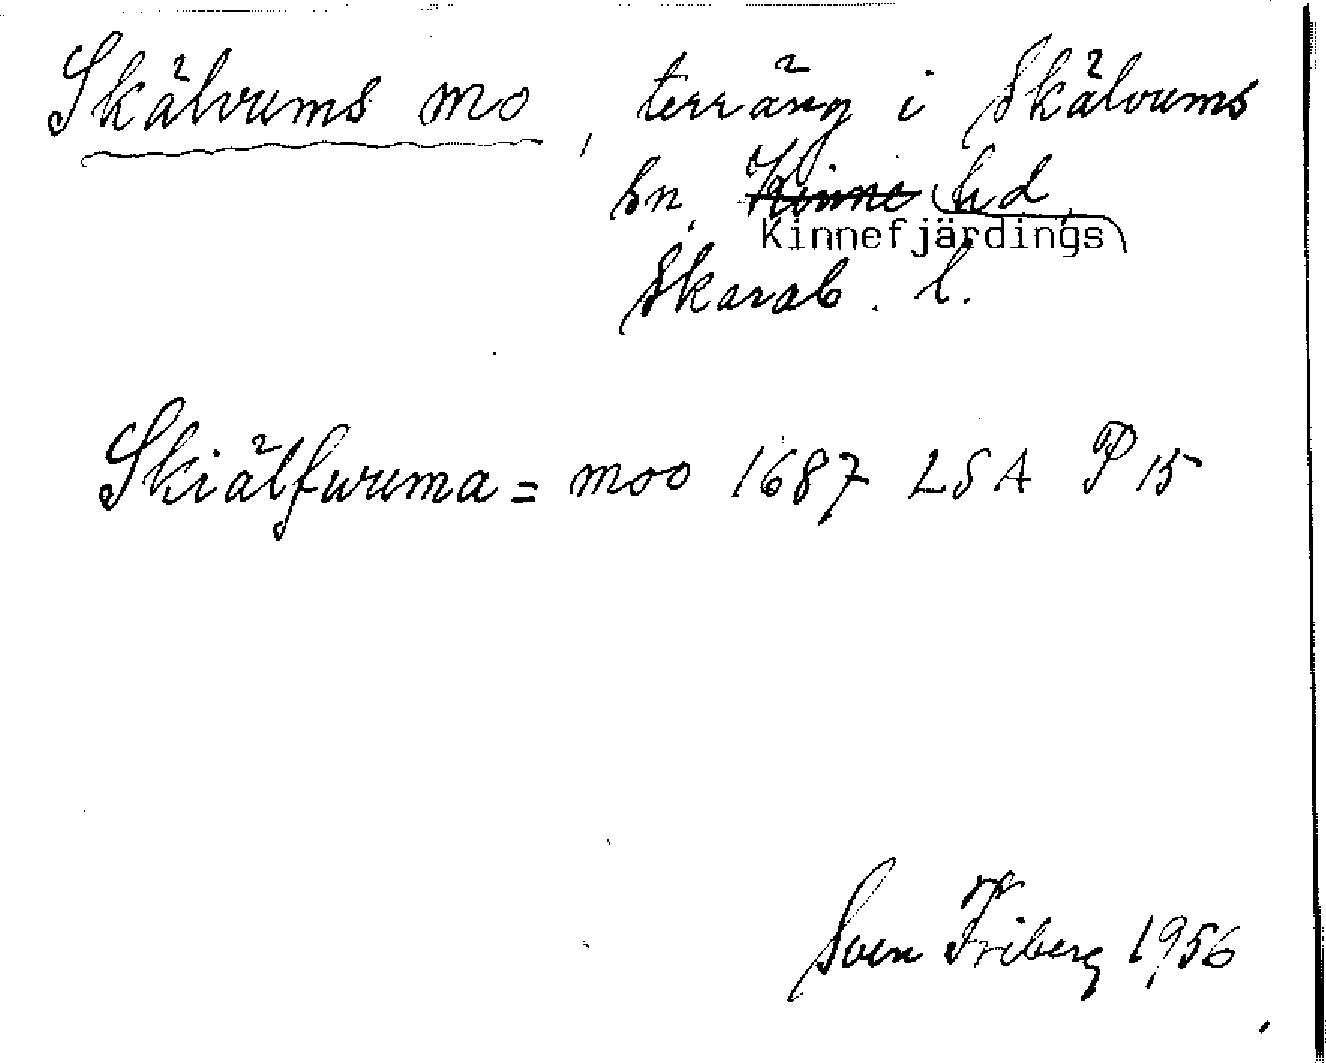 Skälvums mo, terräng i Skälvums
sn, Kinne hd,
Kinnefjärdings
Skarab. l.
Skiälfwruma= moo 1687 LSA P 15
Sven Friberg 1956